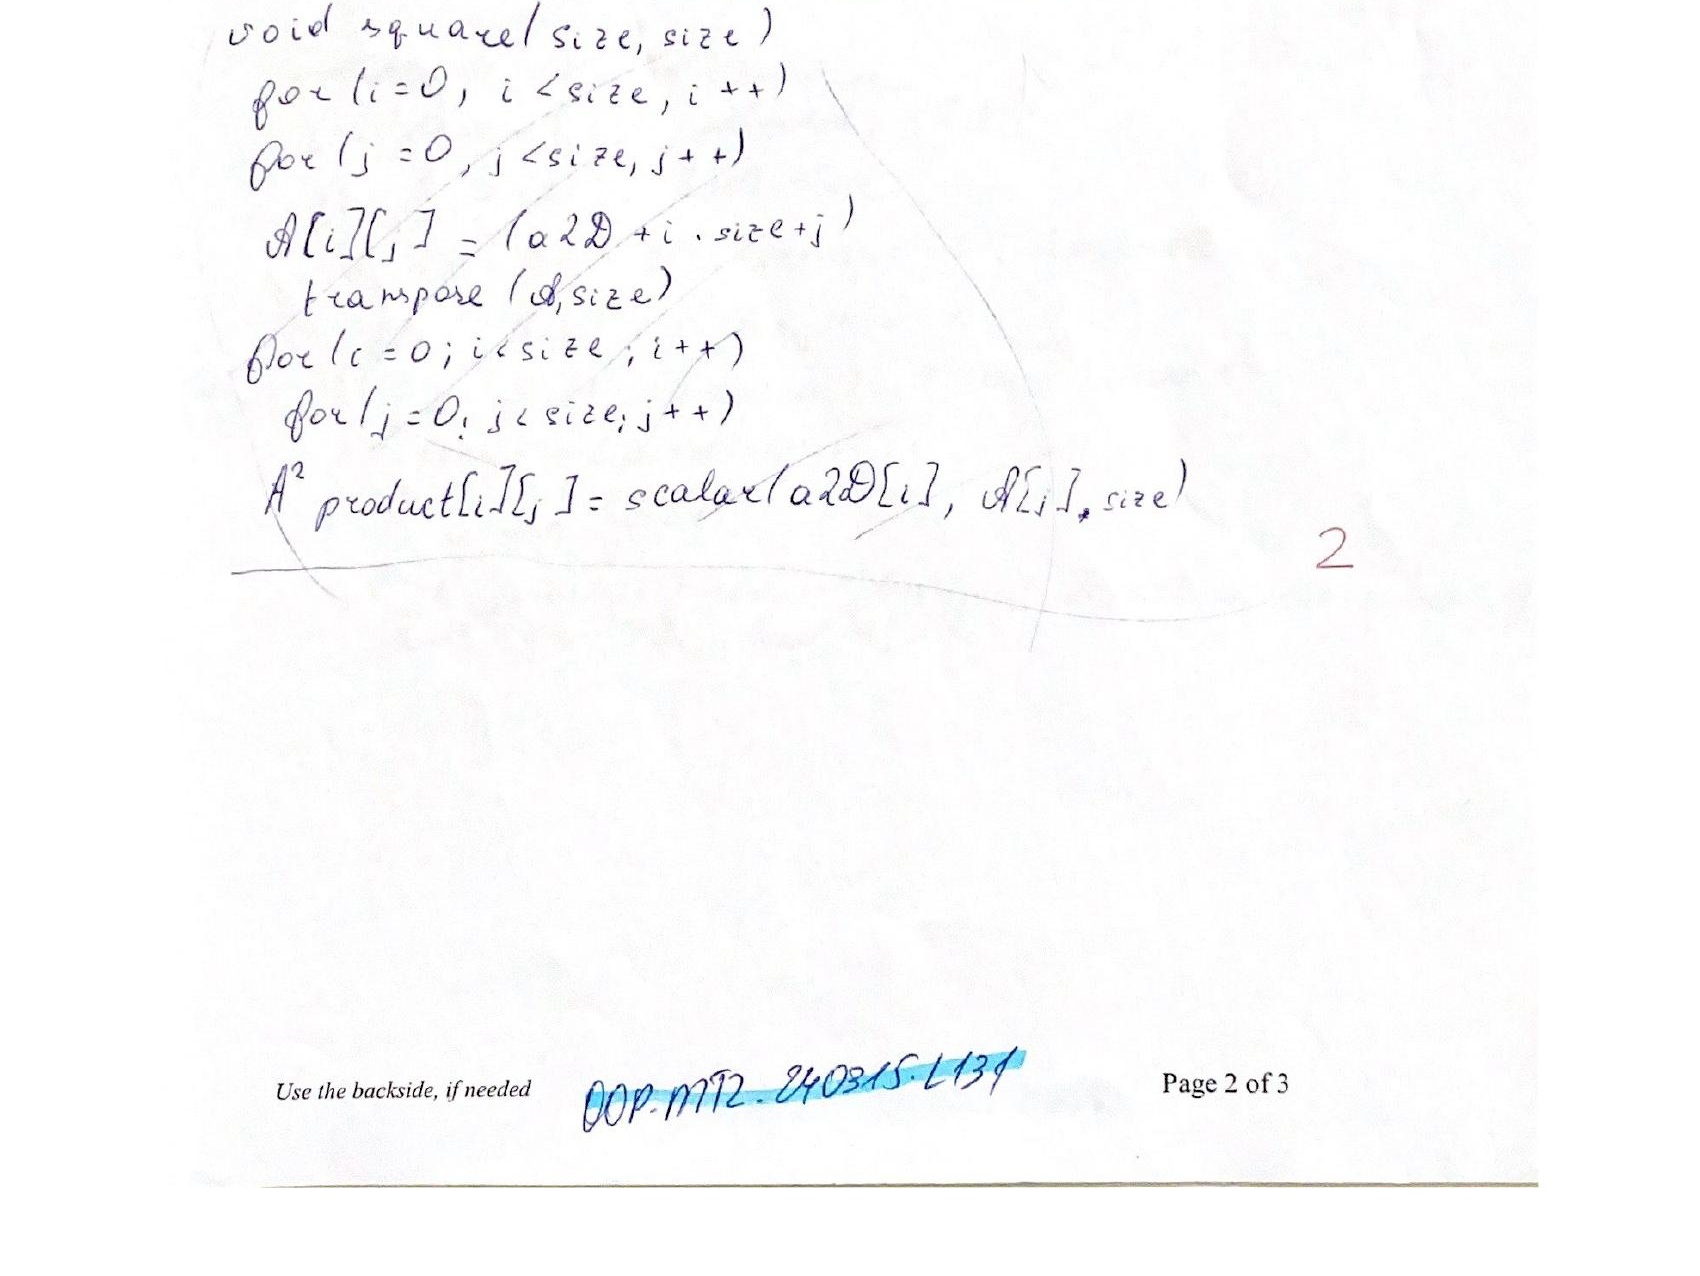 void square(size, size)
for (i=0, i<size, i++)
for (j=0, j<size, j++)
A[i][j] = (a2D + i . size+j)
transpose (A, size)
for (i=0; i<size; i++)
for (j=0; j<size; j++)
A² product[i][j] = scalar(a2D[i], A[j], size)
2
Use the backside, if needed OOP.MT2.240315.L131 Page 2 of 3